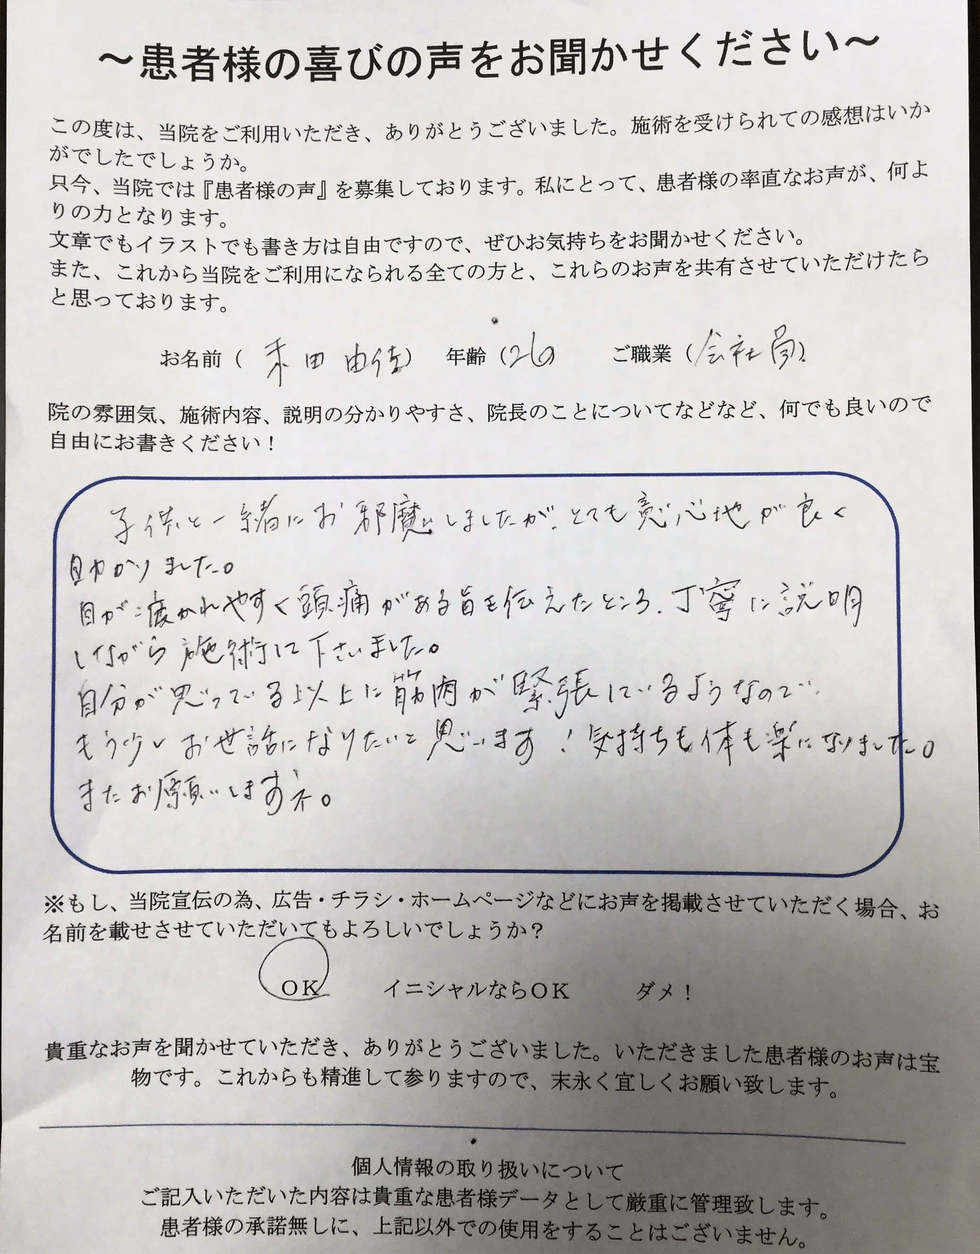 ～患者様の喜びの声をお聞かせください～
この度は、当院をご利用いただき、ありがとうございました。施術を受けられての感想はいか
がでしたでしょうか。
只今、当院では『患者様の声』を募集しております。私にとって、患者様の率直なお声が、何よ
りの力となります。
文章でもイラストでも書き方は自由ですので、ぜひお気持ちをお聞かせください。
また、これから当院をご利用になられる全ての方と、これらのお声を共有させていただけたら
と思っております。
お名前（ 田 由佳） 年齢（26） ご職業（会社員）
院の雰囲気、施術内容、説明の分かりやすさ、院長のことについてなどなど、何でも良いので
自由にお書きください！
子供と一緒にお邪魔しましたが、とても居心地が良く
助かりました。
目が疲れやすく頭痛がある旨を伝えたところ、丁寧に説明
しながら施術して下さいました。
自分が思っている以上に筋肉が緊張しているようなので、
もう少しお世話になりたいと思います！気持ちも体も楽になりました。
またお願いします。
※もし、当院宣伝の為、広告・チラシ・ホームページなどにお声を掲載させていただく場合、お
名前を載せさせていただいてもよろしいでしょうか？
ＯＫ イニシャルならＯＫ ダメ！
貴重なお声を聞かせていただき、ありがとうございました。いただきました患者様のお声は宝
物です。これからも精進して参りますので、末永く宜しくお願い致します。
個人情報の取り扱いについて
ご記入いただいた内容は貴重な患者様データとして厳重に管理致します。
患者様の承諾無しに、上記以外での使用をすることはございません。